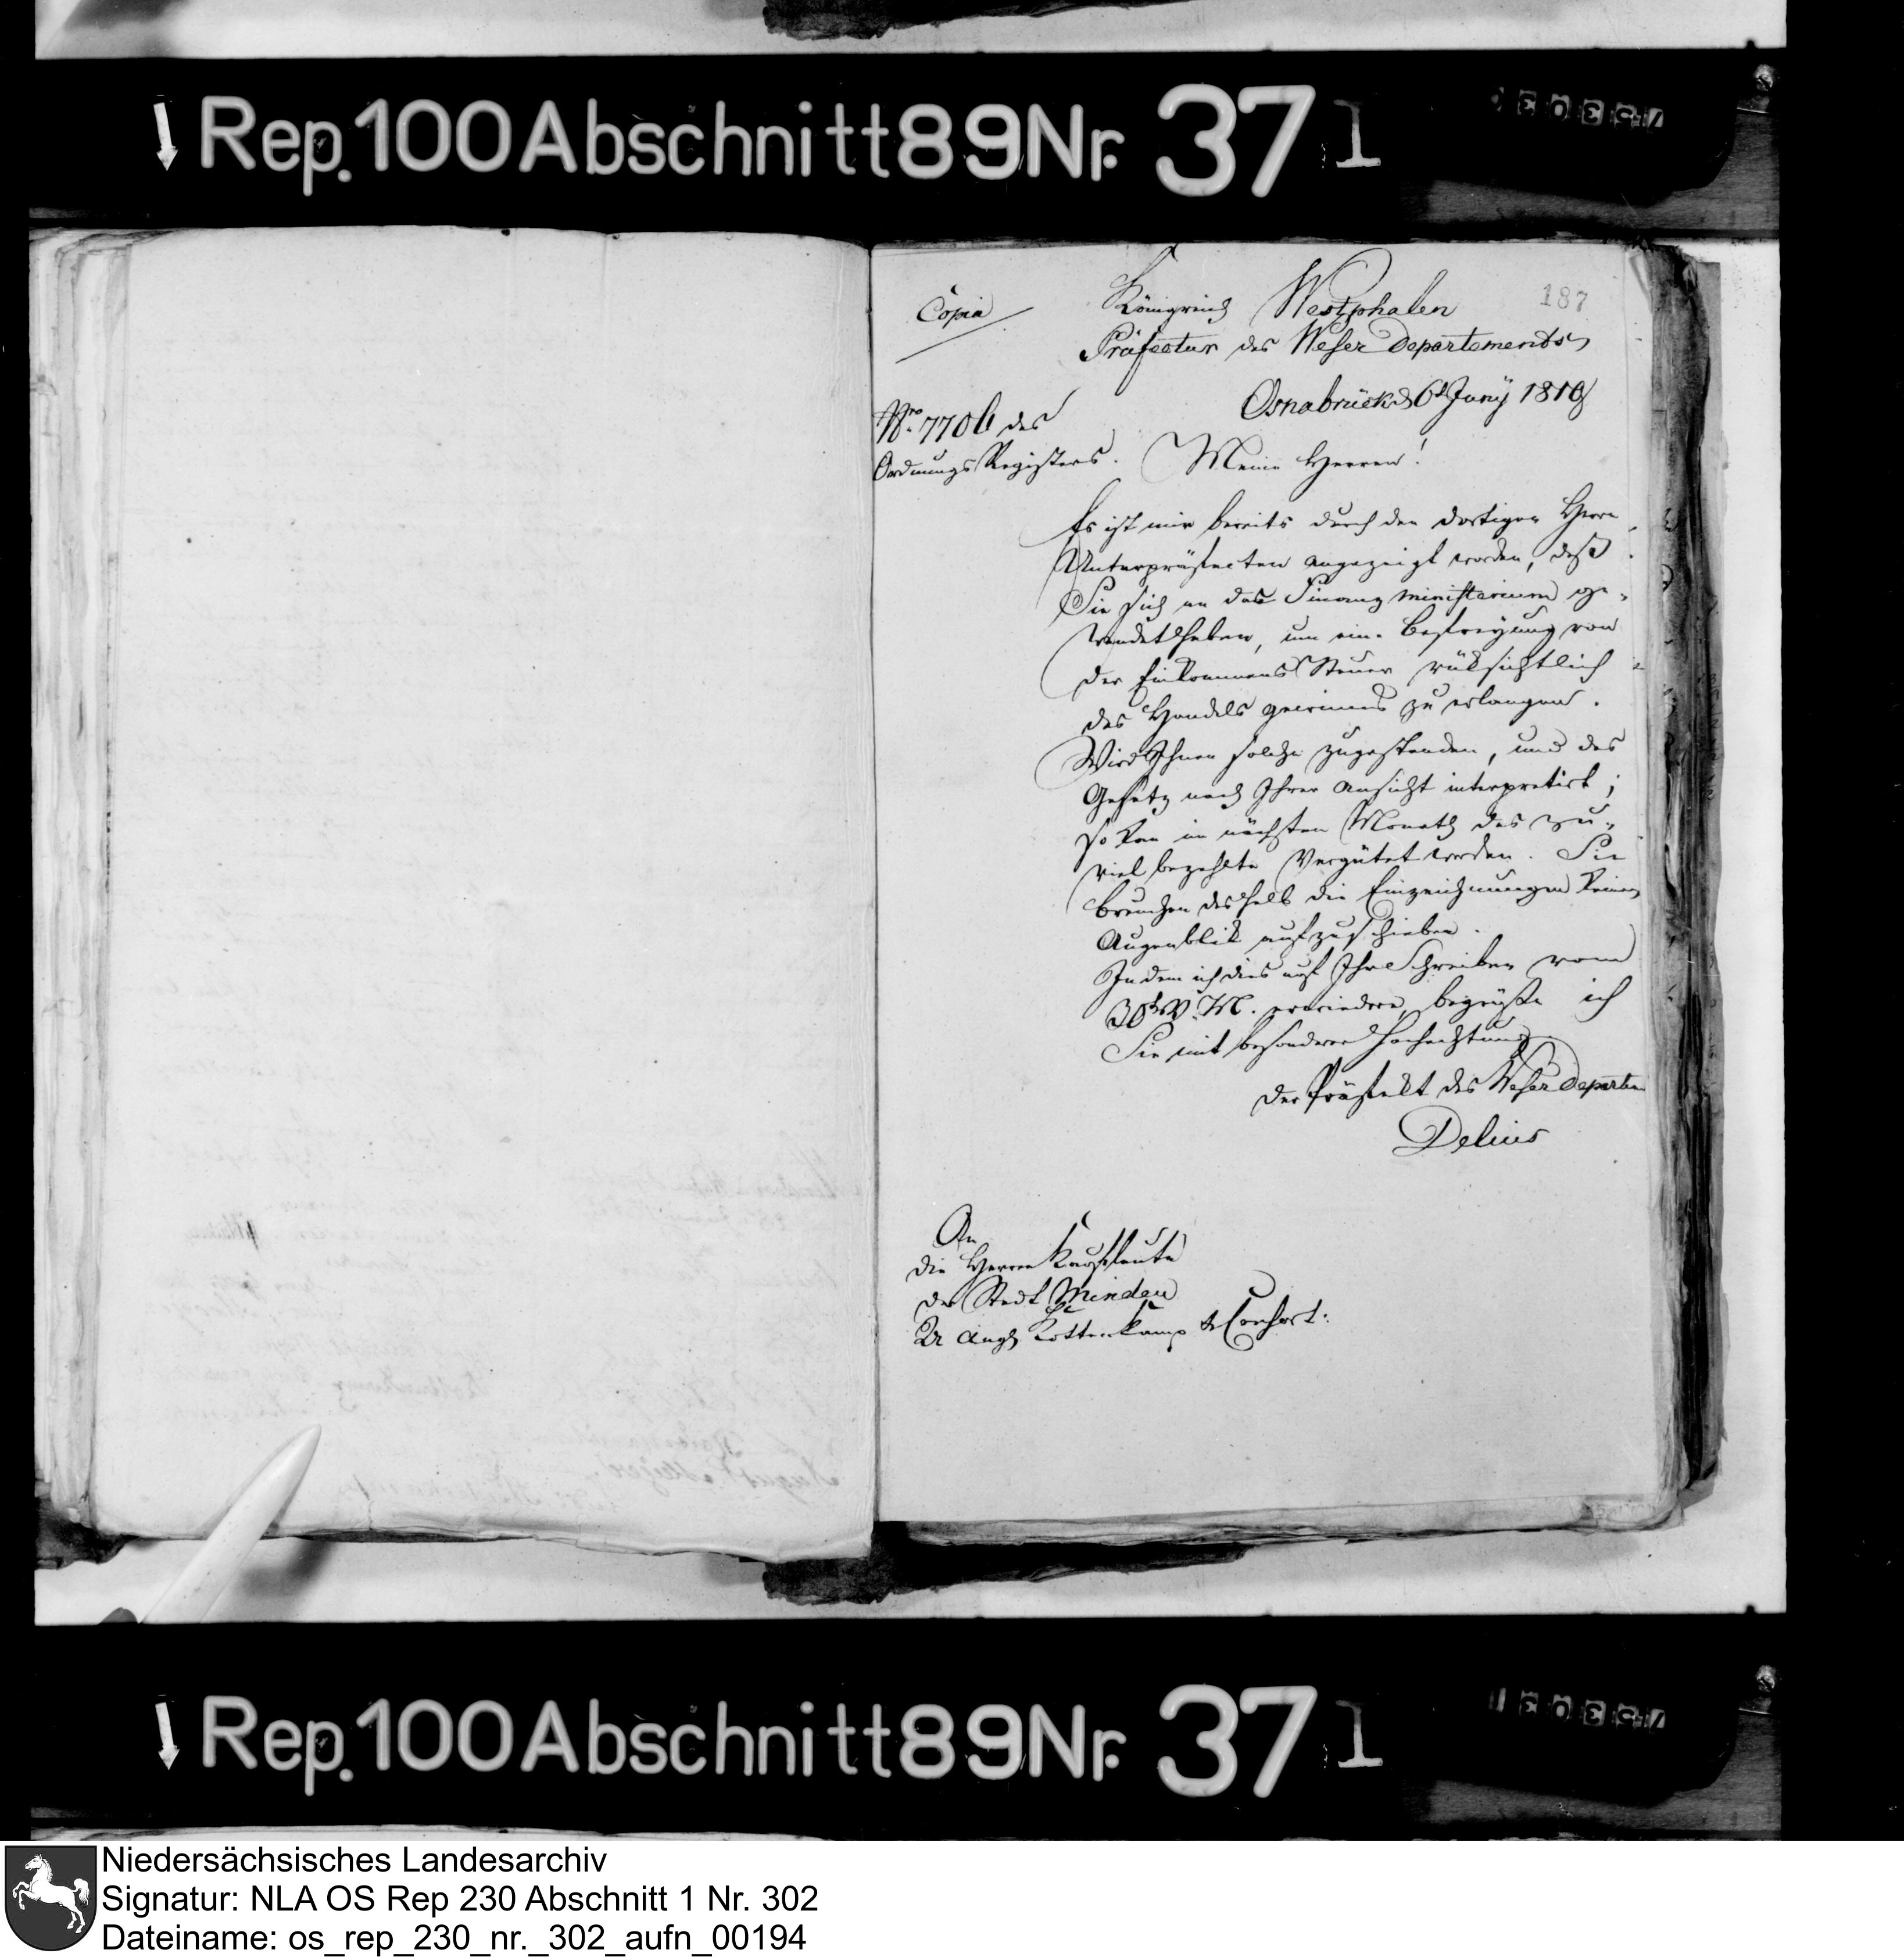 Rep. 100 Abschnitt 89 Nr. 371
Copia
Königreich Westphalen
187
Präfectur des Weser Departements
Osnabrück d 6t Junÿ 1810
Nro 7706 des
Ordnungs Registers.
Meine Herren!
Es ist mir bereits durch den dortigen Herrn
Unterpräfecten angezeigt worden, daß
Sie sich an das Finanz ministerium ge-
wendet haben, um eine Befreyung von
der Einkommens Steuer rüksichtlich
des Handels gewinns zu erlangen.
Wird Ihnen solche zugestanden, und das
Gesetz nach Ihrer Ansicht interpretirt;
so kan im nächsten Monath das zu-
viel bezahlte vergütet werden. Sie
brauchen deshalb die Einzeichnungen keinen
Augenblik aufzuschieben.
Indem ich dies auf Ihr Schreiben vom
30t v. M. erwiedere, begrüße ich
Sie mit besonderer Hochachtung
Der Präfekt des Weser Departem
Delius
An
die Herren Kaufleute
der Stadt Minden
Kottenkamp & Consort:
Rep. 100 Abschnitt 89 Nr. 371
Niedersächsisches Landesarchiv
Signatur: NLA OS Rep 230 Abschnitt 1 Nr. 302
Dateiname: os_rep_230_nr._302_aufn_00194